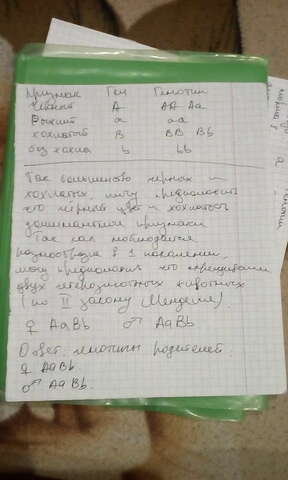 Признак Ген Генотип
Чёрный А АА Аа
Рыжий а аа
хохлатый В ВВ Вb
без хохла b bb
Так большинство чёрных и
хохлатых, могу предположить
что чёрный цвет и хохлатость
доминантные признаки
Так как наблюдается
разнообразие в 1 поколении,
могу предположить что скрещивали
двух гетерозиготных животных
(по II закону Менделя).
♀ АаВb ♂ АаВb
Ответ: генотипы родителей:
♀ АаВb
♂ АаВb.